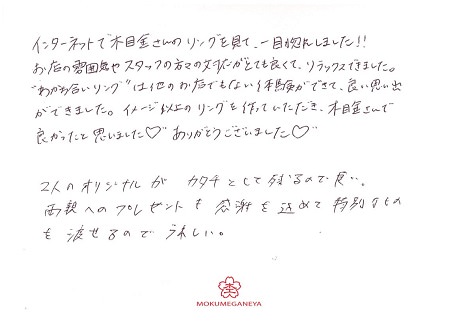 インターネットで木目金さんのリングを見て、一目惚れしました!!
お店の雰囲気やスタッフの方々の対応がとても良くて、リラックスできました。
"わかち合いリング"は他のお店でもない体験ができて、良い思い出
ができました。イメージ以上のリングを作っていただき、木目金さんで
良かったと思いました♡ ありがとうございました♡
2人のオリジナルが カタチとして残るので良い。
両親へのプレゼントも 感謝を込めて特別なもの
を渡せるので うれしい。
MOKUMEGANEYA